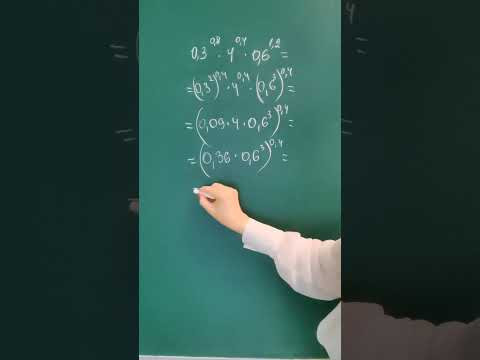 0,3^0,8 · 4^0,4 · 0,6^1,2 =
= (0,3^2)^0,4 · 4^0,4 · (0,6^3)^0,4 =
= (0,09 · 4 · 0,6^3)^0,4 =
= (0,36 · 0,6^3)^0,4 =